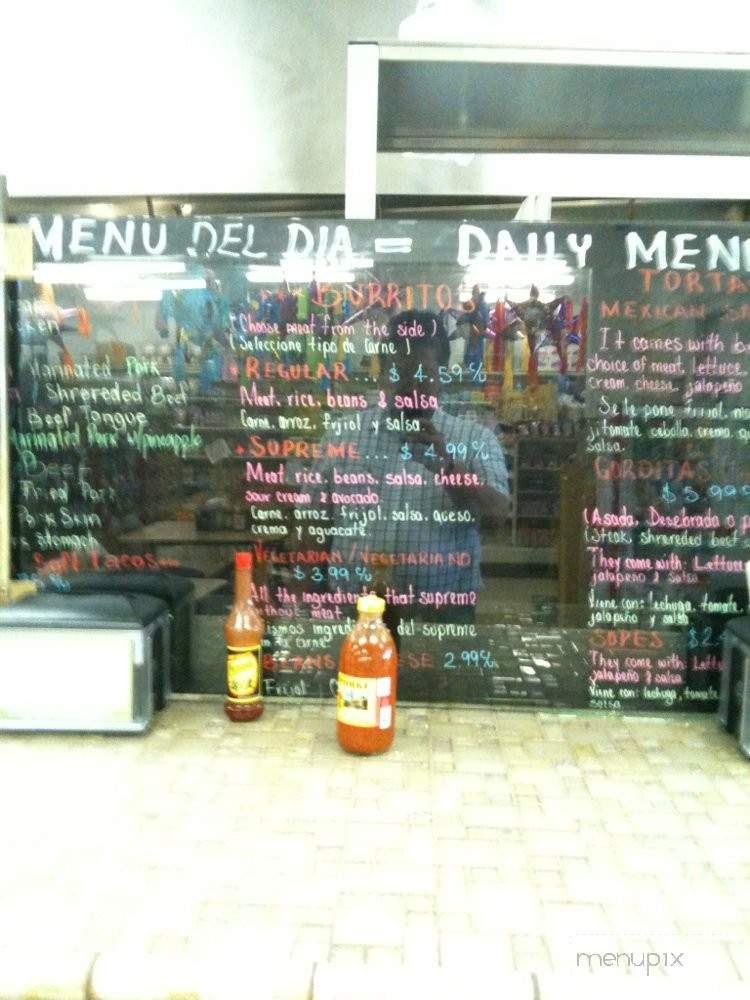 MENU DEL DIA = DAILY MENU
Marinated Pork
Shrereded Beef
Beef Tongue
Marinated Pork w/pineapple
Beef
Fried Pork
Pork Skin
Stomach
Soft Tacos
BURRITOS
(Choose meat from the side)
(Seleccione tipo de Carne)
REGULAR... $ 4.59
Meat, rice, beans & salsa
Carne, arroz, frijol y salsa.
SUPREME... $ 4.99
Meat, rice, beans, salsa, cheese,
sour cream & avocado.
Carne, arroz, frijol, salsa, queso,
crema y aguacate.
VEGETARIAN / VEGETARIANO
$ 3.99
All the ingredients that supreme
without meat
del supreme
Carne
BEANS 2.99
Frijol
TORTA
MEXICAN
It comes with
choice of meat, lettuce
cream, cheese, jalapeño
Se le pone frijol,
jitomate cebolla, crema,
salsa.
GORDITAS
$5.99
(Asada, Desebrada o
(Steak, shrereded beef
They come with: Lettuce
jalapeño & salsa
Viene con: lechuga, tomate,
jalapeño y salsa
SOPES $2
They come with: Lett
jalapeño & salsa
Viene con: lechuga, tomate
salsa
menupix